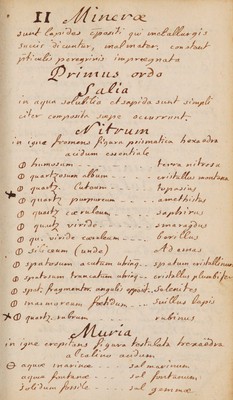 II Mineræ
sunt lapides
suis dicuntur, mal mater, constant
pticulis peregrinis impregnata
Primus ordo
Salia
in aqua solubilia et sapida sunt simpli
citer composita sæpe occurrunt.
Nitrum
in igne fromens figura prismatica hexaëdra
acidum essentiale
humosum terra nitrosa
quartzosum album cristallus montana
quartz. luteum topasius
quartz purpureum amethistus
quartz cæruleum saphirus
quartz viride smaragdus
qu. viride cæruleum berillus
siliceum (unda) Adamas
spatosum acutum spatum cristallinum
spatosum truncatum cristallus
spat. fragmentor. angulis opposit. Selenites
marmoreum fœtidum suillus lapis
quartz. rubrum rubinus
Muria
in igne crepitans figura tessulata hexaëdra
alcalino acidum
aquæ marinæ sal marinum
aquæ fontanæ sal fontanum
solidum fossile sal gemmæ